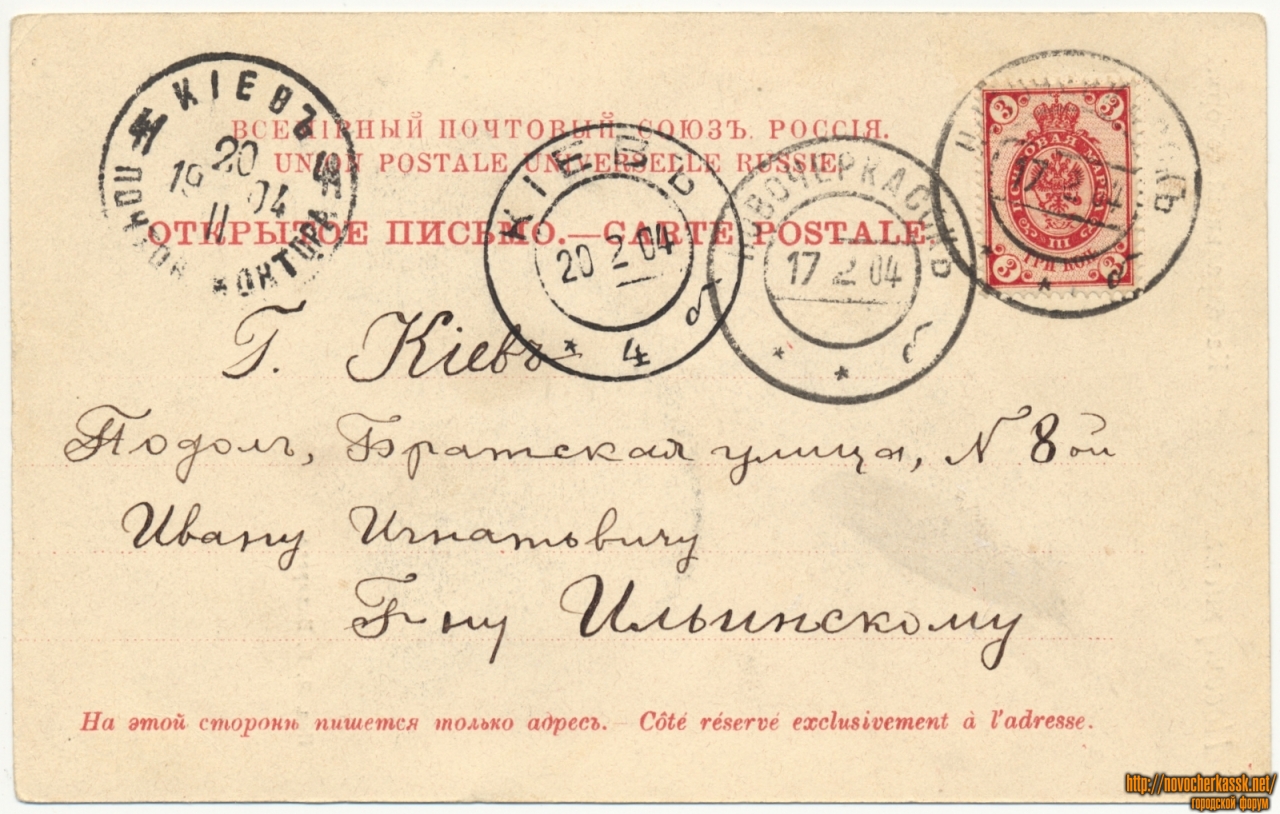 КІЕВЪ
20
19 04
II
ПОЧТОВ. КОНТОРА
ВСЕМІРНЫЙ ПОЧТОВЫЙ СОЮЗЪ. РОССІЯ.
UNION POSTALE UNIVERSELLE RUSSIE.
ОТКРЫТОЕ ПИСЬМО.—CARTE POSTALE.
КІЕВЪ
20 2 04
* 4 б
НОВОЧЕРКАССКЪ
17 2 04
* * б
3 3
ПОЧТОВАЯ МАРКА
III
3 3
ТРИ КОП.
17 2 04
* б
Г. Кіевъ
Подолъ, Братская улица, N 8ой
Ивану Игнатьевичу
Г-ну Ильинскому
На этой сторонѣ пишется только адресъ. — Côté réservé exclusivement à l'adresse.
http://novocherkassk.net/
городской форум